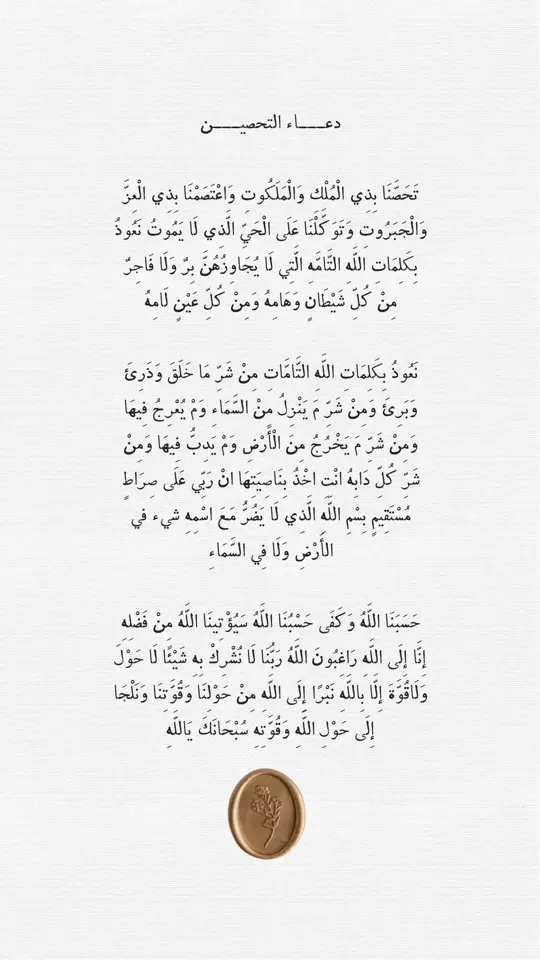 دعـــاء التحصيـــن
تَحَصَّنَا بِذِي الْمُلْكِ وَالْمَلَكُوتِ وَاعْتَصَمْنَا بِذِي الْعِزَّ
وَالْجَبَرُوتِ وَتَوَكَّلْنَا عَلَى الْحَيِّ الَّذِي لَا يَمُوتُ نَعُوذُ
بِكَلِمَاتِ اللَّهِ التَّامَّهِ الَّتِي لَا يُجَاوِزُهُنَّ بِرٌ وَلَا فَاجِرٌ
مِنْ كُلِّ شَيْطَانٍ وَهَامِهُ وَمِنْ كُلِّ عَيْنٍ لَامِهُ
نَعُوذُ بِكَلِمَاتِ اللَّهِ التَّامَّاتِ مِنْ شَرِّ مَا خَلَقَ وَذَرِئَ
وَبَرِئَ وَمِنْ شَرِّ مَ يَنْزِلُ مِنْ السَّمَاءِ وَمْ يُعْرِجُ فِيهَا
وَمِنْ شَرِّ مَ يَخْرُجُ مِنَ الْأَرْضِ وَمْ يَدِبُّ فِيهَا وَمِنْ
شَرِّ كُلِّ دَابِهُ انْتِ اخْذُ بِنَاصِيَتِهَا انْ رَبِّي عَلَى صِرَاطٍ
مُسْتَقِيمٍ بِسْمِ اللَّهِ الَّذِي لَا يَضُرُّ مَعَ اسْمِهِ شيء في
الأَرْضِ وَلَا فِي السَّمَاءِ
حَسَبَنَا اللَّهُ وَكَفَى حَسْبُنَا اللَّهُ سَيُؤْتِينَا اللَّهُ مِنْ فَضْلِهِ
إِنَّا إِلَى اللَّهِ رَاغِبُونَ اللَّهُ رَبُّنَا لَا نُشْرِكْ بِهِ شَيْئًا لَا حَوْلَ
وَلَاقُوَّةَ إِلَّا بِاللَّهِ نَبْرًا إِلَى اللَّهِ مِنْ حَوْلِنَا وَقُوَّتِنَا وَنَلْجَا
إِلَى حَوْلِ اللَّهِ وَقُوَّتِهِ سُبْحَانَكَ يَاللَّهِ